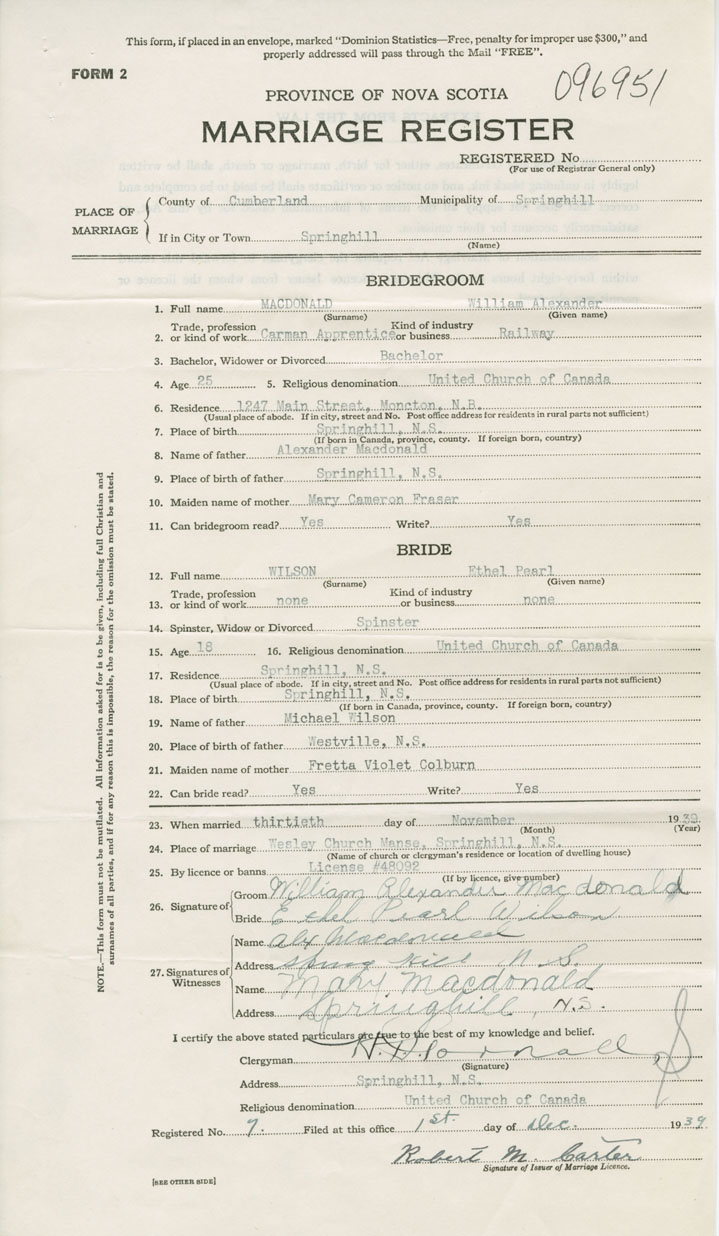 This form, if placed in an envelope, marked "Dominion Statistics—Free, penalty for improper use $300," and
properly addressed will pass through the Mail "FREE".
FORM 2
096951
PROVINCE OF NOVA SCOTIA
MARRIAGE REGISTER
REGISTERED No.
(For use of Registrar General only)
PLACE OF MARRIAGE
County of Cumberland Municipality of Springhill
If in City or Town Springhill
(Name)
BRIDEGROOM
1. Full name MACDONALD William Alexander
(Surname) (Given name)
2. Trade, profession or kind of work Carman Apprentice Kind of industry or business Railway
3. Bachelor, Widower or Divorced Bachelor
4. Age 25 5. Religious denomination United Church of Canada
6. Residence 1247 Main Street, Moncton, N.B.
(Usual place of abode. If in city, street and No. Post office address for residents in rural parts not sufficient)
7. Place of birth Springhill, N.S.
(If born in Canada, province, county. If foreign born, country)
8. Name of father Alexander Macdonald
9. Place of birth of father Springhill, N.S.
10. Maiden name of mother Mary Cameron Fraser
11. Can bridegroom read? Yes Write? Yes
BRIDE
12. Full name WILSON Ethel Pearl
(Surname) (Given name)
13. Trade, profession or kind of work none Kind of industry or business none
14. Spinster, Widow or Divorced Spinster
15. Age 18 16. Religious denomination United Church of Canada
17. Residence Springhill, N.S.
(Usual place of abode. If in city, street and No. Post office address for residents in rural parts not sufficient)
18. Place of birth Springhill, N.S.
(If born in Canada, province, county. If foreign born, country)
19. Name of father Michael Wilson
20. Place of birth of father Westville, N.S.
21. Maiden name of mother Fretta Violet Colburn
22. Can bride read? Yes Write? Yes
23. When married thirtieth day of November 1939
(Month) (Year)
24. Place of marriage Wesley Church Manse, Springhill, N.S.
(Name of church or clergyman's residence or location of dwelling house)
25. By licence or banns License #48092
(If by licence, give number)
26. Signature of
Groom William Alexander Macdonald
Bride Ethel Pearl Wilson
27. Signatures of Witnesses
Name Alex Macdonald
Address Spring Hill N.S.
Name Mary Macdonald
Address Springhill, N.S.
I certify the above stated particulars are true to the best of my knowledge and belief.
Clergyman
(Signature)
Address Springhill, N.S.
Religious denomination United Church of Canada
Registered No. 7. Filed at this office 1st. day of Dec. 1939
Robert M. Carter
Signature of Issuer of Marriage Licence.
[SEE OTHER SIDE]
NOTE.—This form must not be mutilated. All information asked for is to be given, including full Christian and
surnames of all parties, and if for any reason this is impossible, the reason for the omission must be stated.